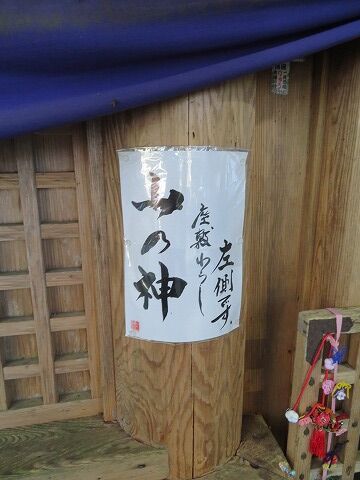 左側です。
座敷わらし
山の神